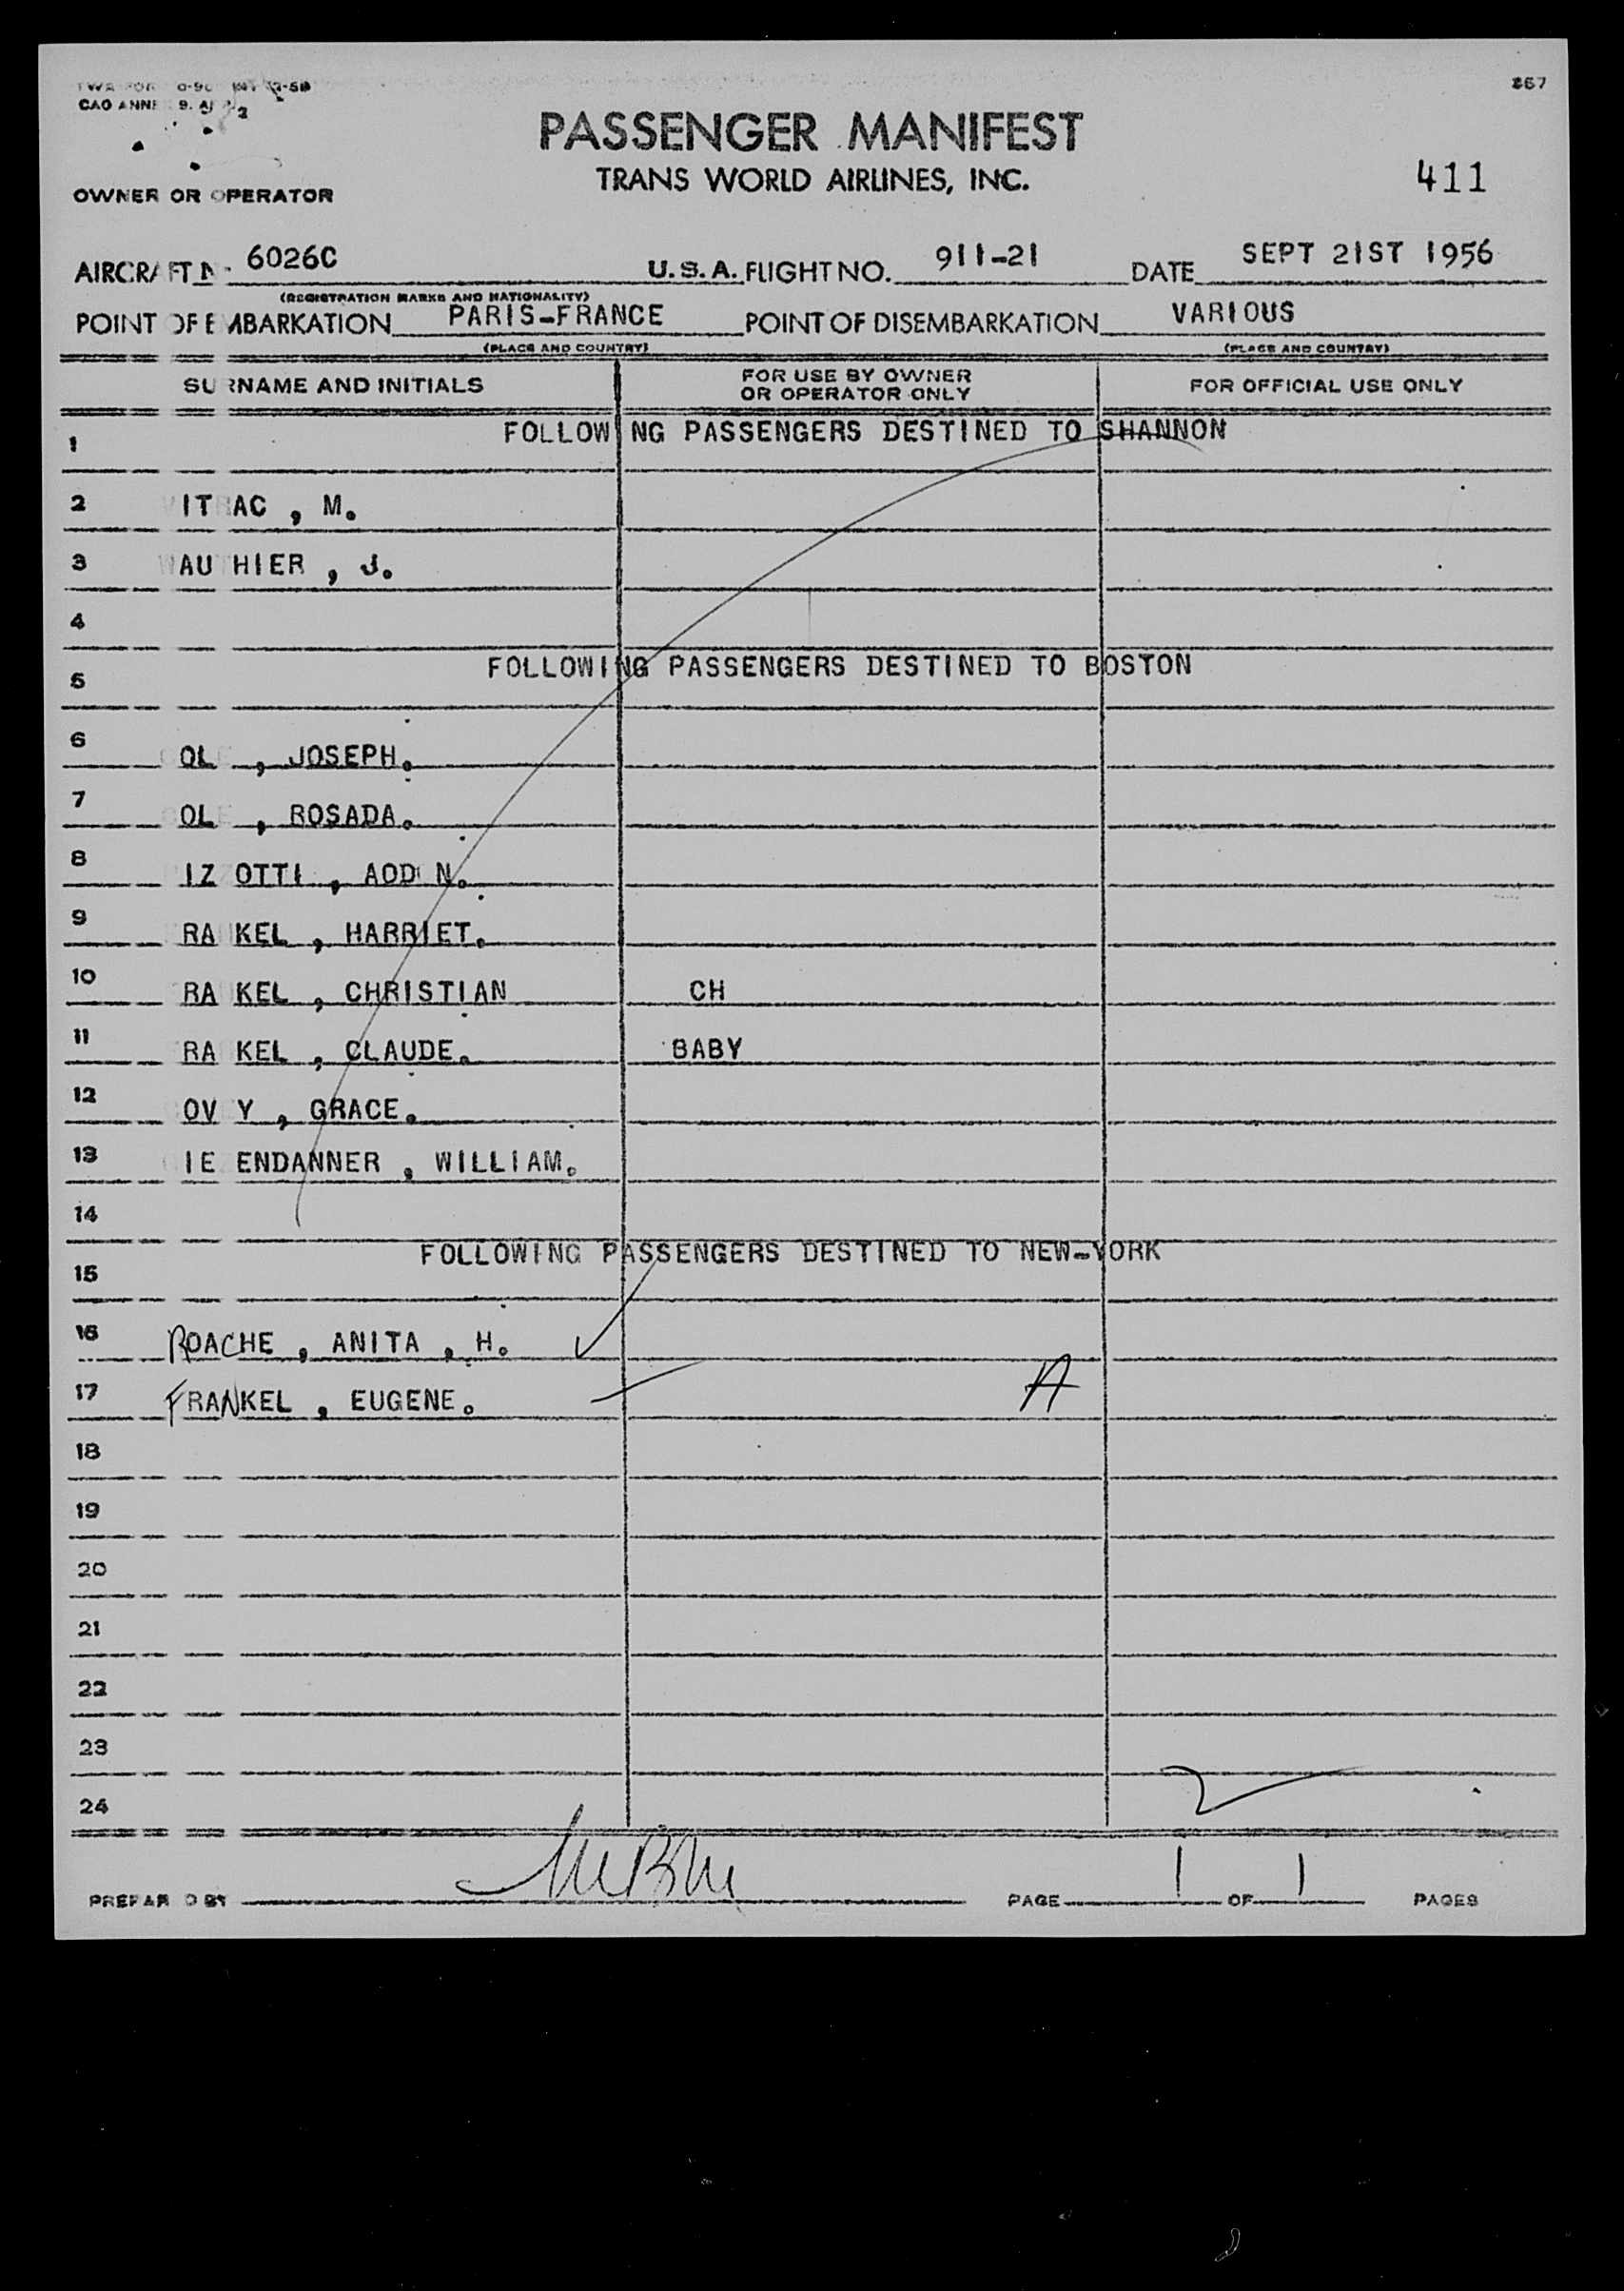 CAO ANNE 9. A 2
867
PASSENGER MANIFEST
TRANS WORLD AIRLINES, INC.
411
OWNER OR OPERATOR
AIRCRAFT N. 6026C U.S.A. FLIGHT NO. 911-21 DATE SEPT 21ST 1956
(REGISTRATION MARKS AND NATIONALITY)
POINT OF EMBARKATION PARIS-FRANCE POINT OF DISEMBARKATION VARIOUS
(PLACE AND COUNTRY) (PLACE AND COUNTRY)
SURNAME AND INITIALS FOR USE BY OWNER OR OPERATOR ONLY FOR OFFICIAL USE ONLY
1 FOLLOWING PASSENGERS DESTINED TO SHANNON
2 VITRAC , M.
3 WAUTHIER , J.
4
5 FOLLOWING PASSENGERS DESTINED TO BOSTON
6 COLE , JOSEPH.
7 COLE , ROSADA.
8 IZ OTTI , AOD N.
9 FRANKEL , HARRIET.
10 FRANKEL , CHRISTIAN CH
11 FRANKEL , CLAUDE. BABY
12 OV Y , GRACE.
13 IE ENDANNER , WILLIAM.
14
15 FOLLOWING PASSENGERS DESTINED TO NEW-YORK
16 ROACHE , ANITA , H.
17 FRANKEL , EUGENE. A
18
19
20
21
22
23
24
PREPARED BY PAGE 1 OF 1 PAGES